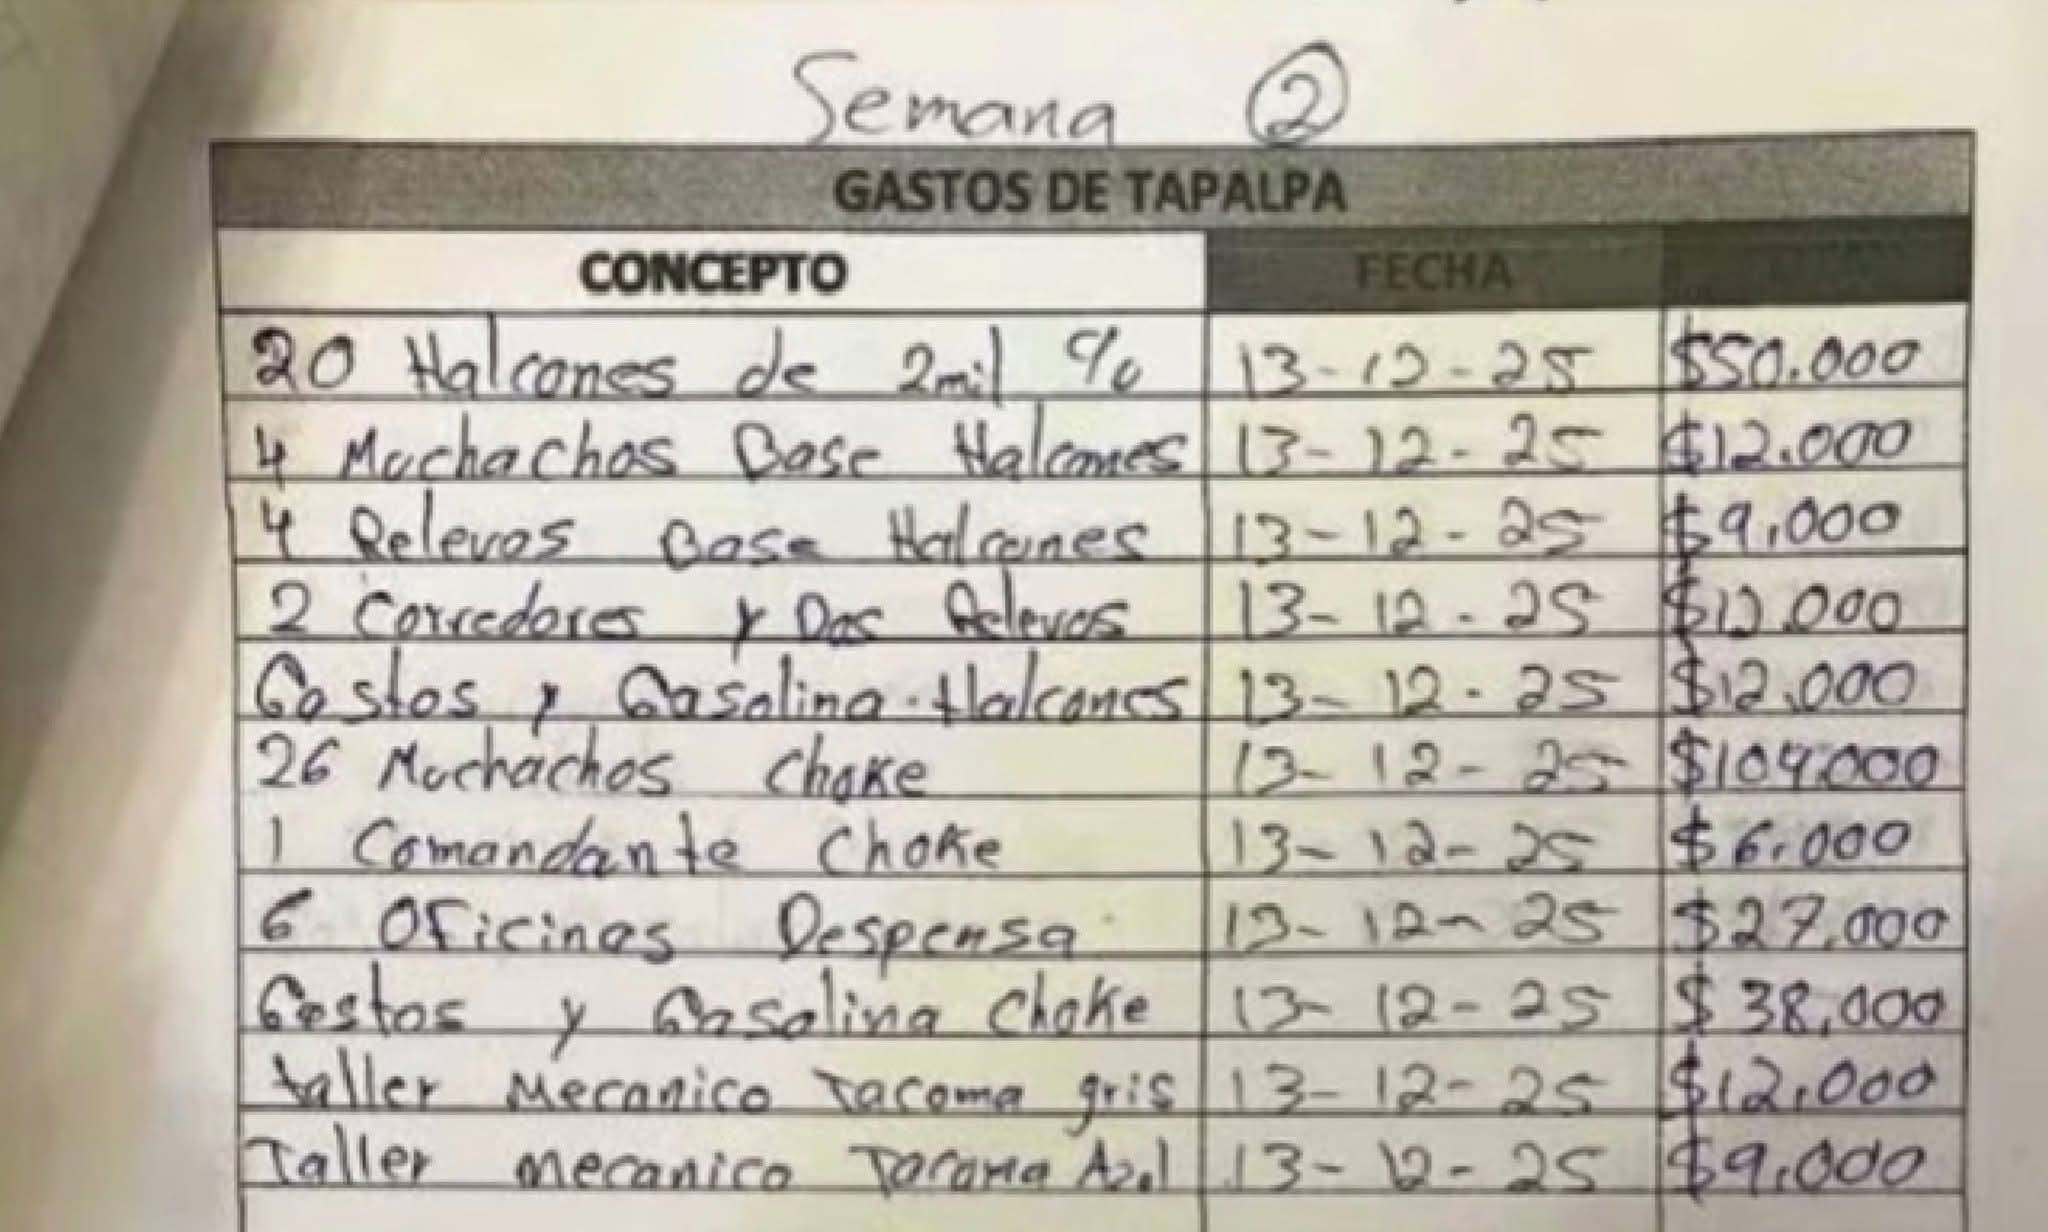 Semana 2
GASTOS DE TAPALPA
CONCEPTO FECHA
20 Halcones de 2mil % 13-12-25 $50.000
4 Muchachos Base Halcones 13-12-25 $12.000
4 Relevos Base Halcones 13-12-25 $9,000
2 Corredores y Dos Relevos 13-12-25 $12.000
Gastos y Gasolina Halcones 13-12-25 $12,000
26 Muchachos Choke 13-12-25 $104.000
1 Comandante Choke 13-12-25 $6,000
6 Oficinas Despensa 13-12-25 $27,000
Gastos y Gasolina Choke 13-12-25 $38,000
taller Mecanico Tacoma gris 13-12-25 $12,000
Taller mecanico Tacoma Azul 13-12-25 $9,000